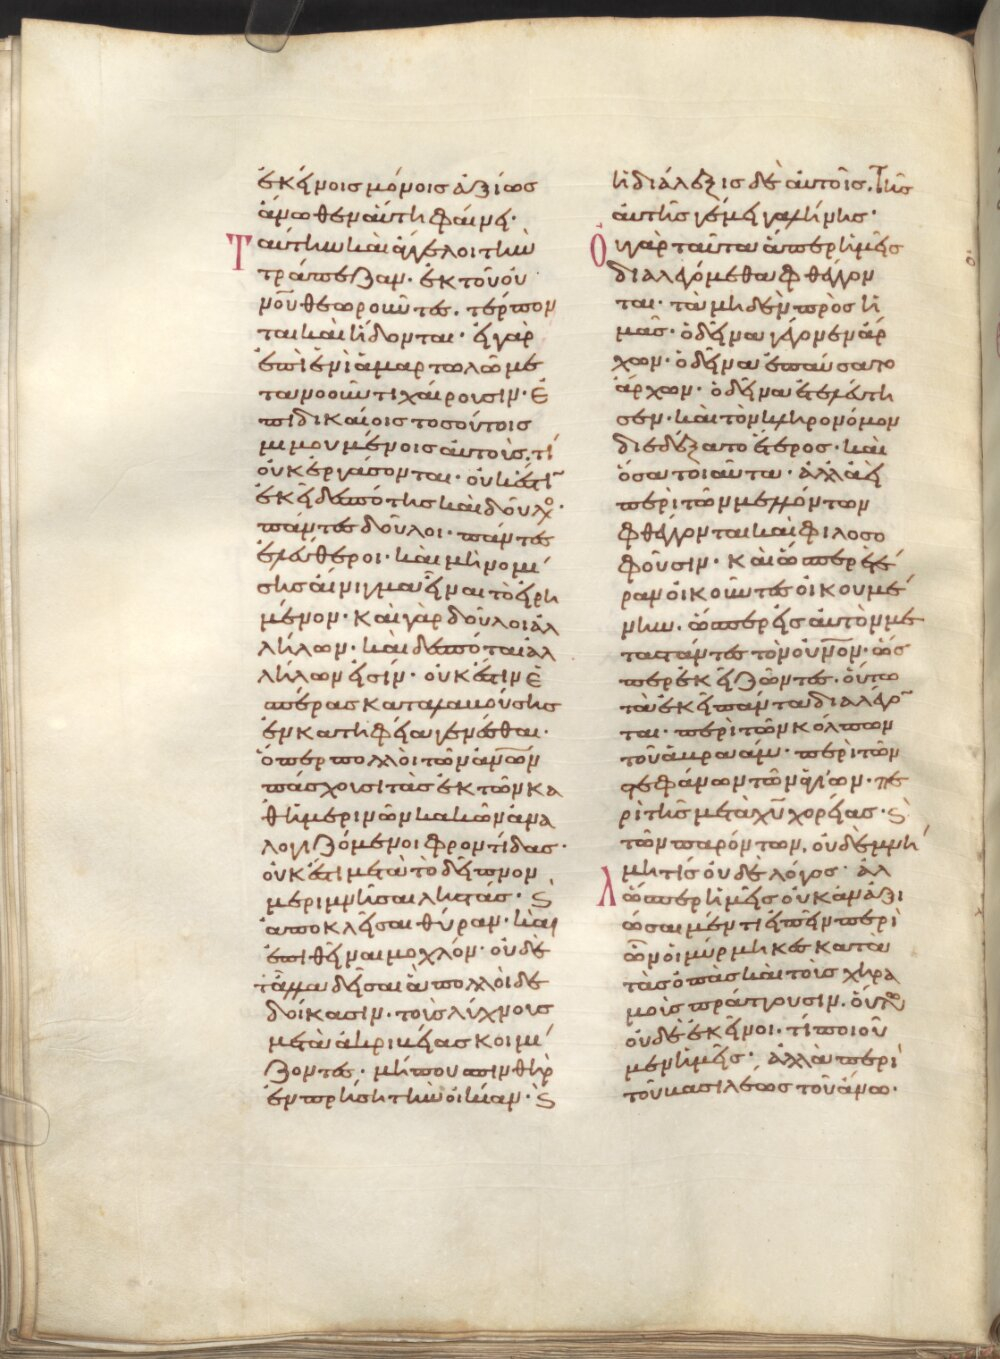 ἐκείνοις μόνοις ἀξίως
ἄνωθεν αὐτὴ φαίνει·
Ταύτην καὶ ἄγγελοι τὴν
τράπεζαν· ἐκ τοῦ οὐ
νοῦ θεωροῦντες. τέρπον
ται καὶ ἥδονται· εἰ γὰρ
ἐπὶ ἑνὶ ἁμαρτωλῶ με
τανοοῦντι χαίρουσιν· ἐ
πὶ δικαίοις τοσούτοις
μιμουμένοις αὐτοὺς. τί
οὐκ ἐργάσονται· οὐκ ἔστι
ἐκεῖ δεσπότης καὶ δοῦλος·
πάντες δοῦλοι· πάντες
ἐλεύθεροι· καὶ μὴ νομί
σης αἴνιγμα εἶναι τὸ εἰρη
μένον· καὶ γὰρ δοῦλοι ἀλ
λήλων· καὶ δεσπόται ἀλ
λήλων εἰσίν· οὐκ ἔστιν ἑ
σπέρας καταλαβούσης
ἐν κατηφεία γενέσθαι·
ὅπερ πολλοὶ τῶν ἀνων
πάσχουσι τὰς ἐκ τῶν κα
θημερινῶν κακῶν ἀνα
λογιζόμενοι φροντίδας·
οὐκ ἔστι μετὰ τὸ δεῖπνον
μεριμνῆσαι ληστάς· ϗ
ἀποκλεῖσαι θύραν· καὶ
ἐπιθεῖναι μοχλόν· οὐδὲ
τἄλλα δεῖσαι ἃ πολλοὶ δε
δοίκασιν. τοὺς λύχνους
μετὰ ἀκριβείας κοιμί
ζοντες· μή που σπινθὴρ
ἐμπρήση τὴν οἰκίαν· ϗ
ἡ διάλεξις δὲ αὐτοῖς. τῆς
αὐτῆς γέμει γαλήνης·
Οὐ γὰρ ταῦτα ἅπερ ἡμεῖς
διαλεγόμεθα φθέγγον
ται· τὰ μηδὲν πρὸς ἡ
μᾶς· ὁ δεῖνα γέγονεν ἄρ
χων· ὁ δεῖνα ἐπαύσατο
ἄρχων· ὁ δεῖνα ἐτελεύτη
σεν· καὶ τὸν κλῆρονόμον
διεδέξατο ἕτερος· καὶ
ὅσα τοιαῦτα· ἀλλ ἀεὶ
περὶ τῶν μελλόντων
φθέγγονται καὶ φιλοσο
φοῦσιν· καὶ ὥσπερ ἑτέ
ραν οἰκοῦντες οἰκουμέ
νην. ὥσπερ εἰς αὐτὸν με
ταστάντες τὸν οὐνον· ὥς
περ ἐκεῖ ζῶντες. οὕτω
τὰ ἐκεῖ πάντα διαλέγο
ται· περὶ τῶν κόλπων
τοῦ ἀβραάμ· περὶ τῶν
στεφάνων τῶν ἁγίων· πε
ρὶ τῆς μετὰ χυ χορείας· ϗ
τῶν παρόντων, οὐδὲ μνή
μη τίς οὐδὲ λόγος· ἀλ
Λ ὥσπερ ἡμεῖς οὐκ ἂν ἀξι
ώσαιμέν τι εἰπεῖν περὶ
ὧν οἱ μύρμηκες κατὰ
τὰς ὀπὰς καὶ τοὺς χηρα
μοὺς πράττουσιν. οὕτως
οὐδὲ ἐκεῖνοι. τί ποιοῦ
μεν ἡμεῖς· ἀλλὰ περὶ
τοῦ βασιλέως τοῦ ἄνω·